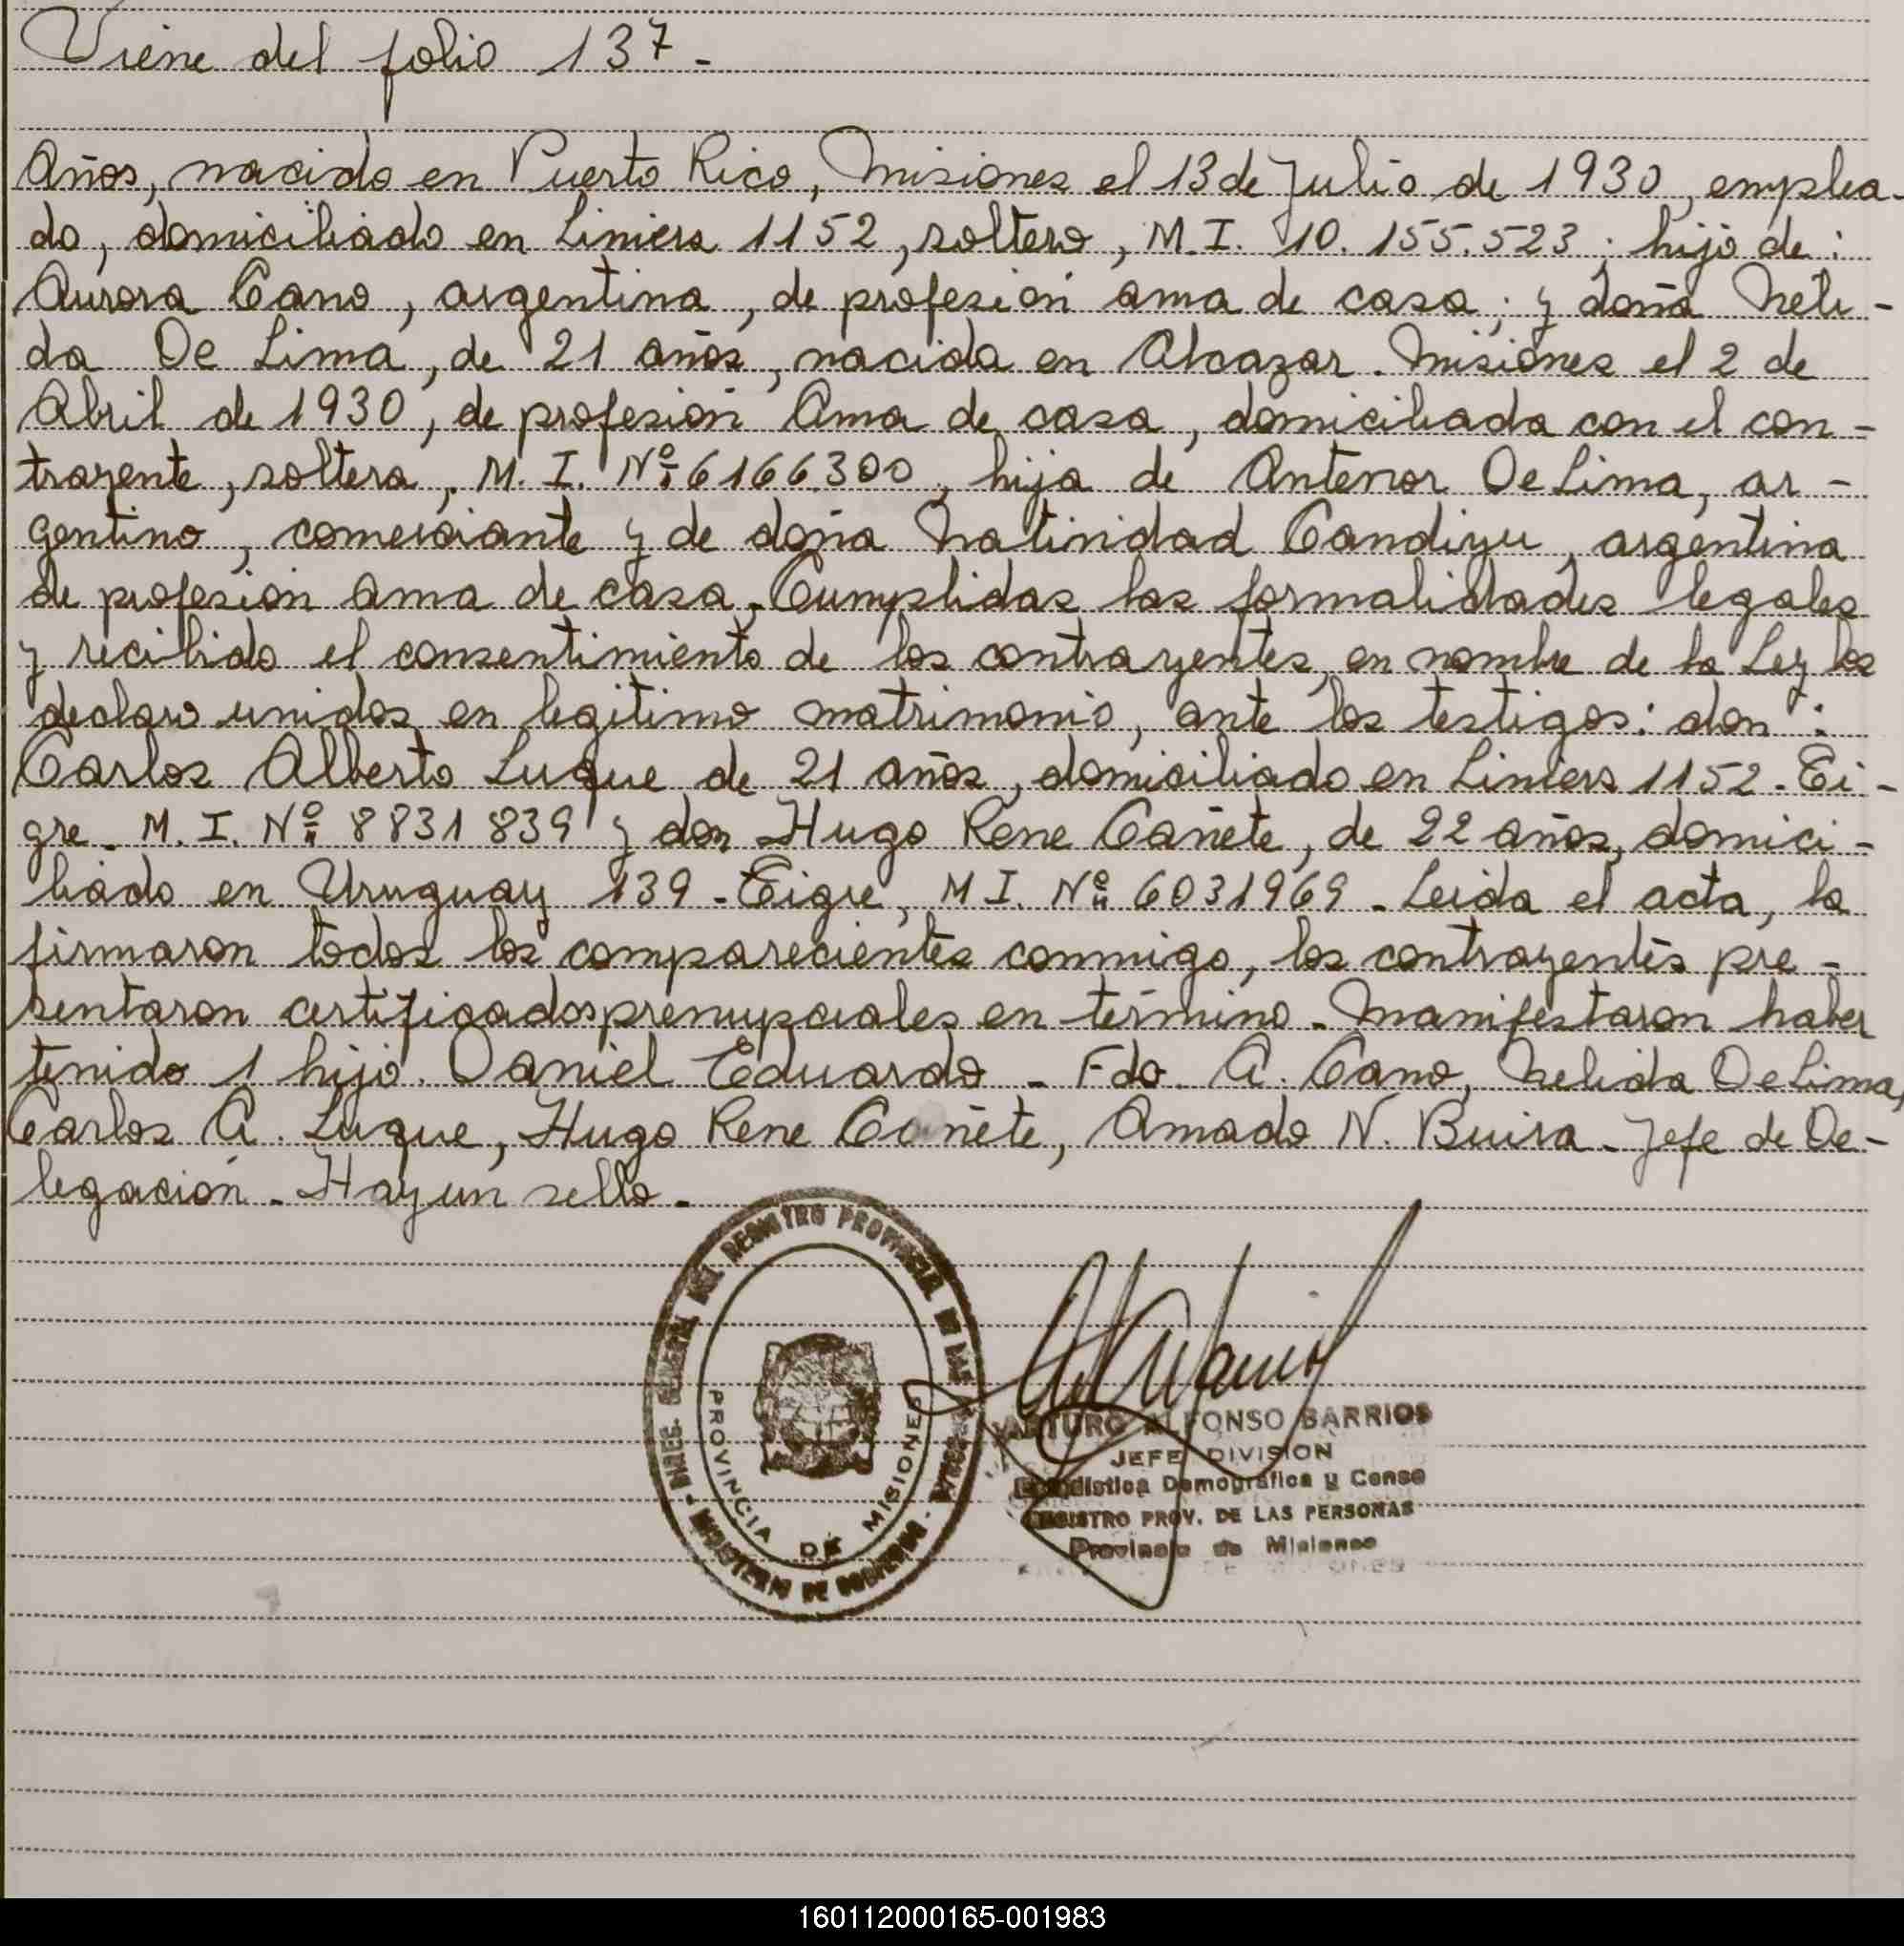 Viene del folio 137 -
Años, nacido en Puerto Rico, Misiones el 13 de Julio de 1930, emplea-
do, domiciliado en Liniers 1152, soltero, M.I. 10.155.523; hijo de:
Aurora Cano, argentina, de profesion ama de casa; y doña Neli-
da De Lima, de 21 años, nacida en Alcazar. Misiones el 2 de
Abril de 1930, de profesion Ama de casa, domiciliada con el con-
trayente, soltera, M.I. Nº 6166.300, hija de Antenor De Lima, ar-
gentino, comerciante y de doña Natividad Candiyu, argentina
de profesion ama de casa. Cumplidas las formalidades legales
y recibido el consentimiento de los contrayentes, en nombre de la Ley los
declaro unidos en legitimo matrimonio, ante los testigos: don:
Carlos Alberto Luque de 21 años, domiciliado en Liniers 1152. Ti-
gre. M.I. Nº 8831839 y don Hugo Rene Cañete, de 22 años, domici-
liado en Uruguay 139 - Tigre, M I. Nº 6031969 - Leida el acta, la
firmaron todos los comparecientes conmigo, los contrayentes pre-
sentaron certificados prenupciales en término - Manifestaron haber
tenido 1 hijo. Daniel Eduardo - Fdo. A. Cano, Nelida De Lima,
Carlos A. Luque, Hugo Rene Cañete, Amado N. Buira - Jefe de De-
legación - Hay un sello -
DIREC. GENERAL DEL REGISTRO PROVINCIAL DE LAS PERSONAS - MINISTERIO DE GOBIERNO
PROVINCIA DE MISIONES
ARTURO ALFONSO BARRIOS
JEFE DIVISION
Estadistica Demografica y Censo
REGISTRO PROV. DE LAS PERSONAS
Provincia de Misiones
160112000165-001983